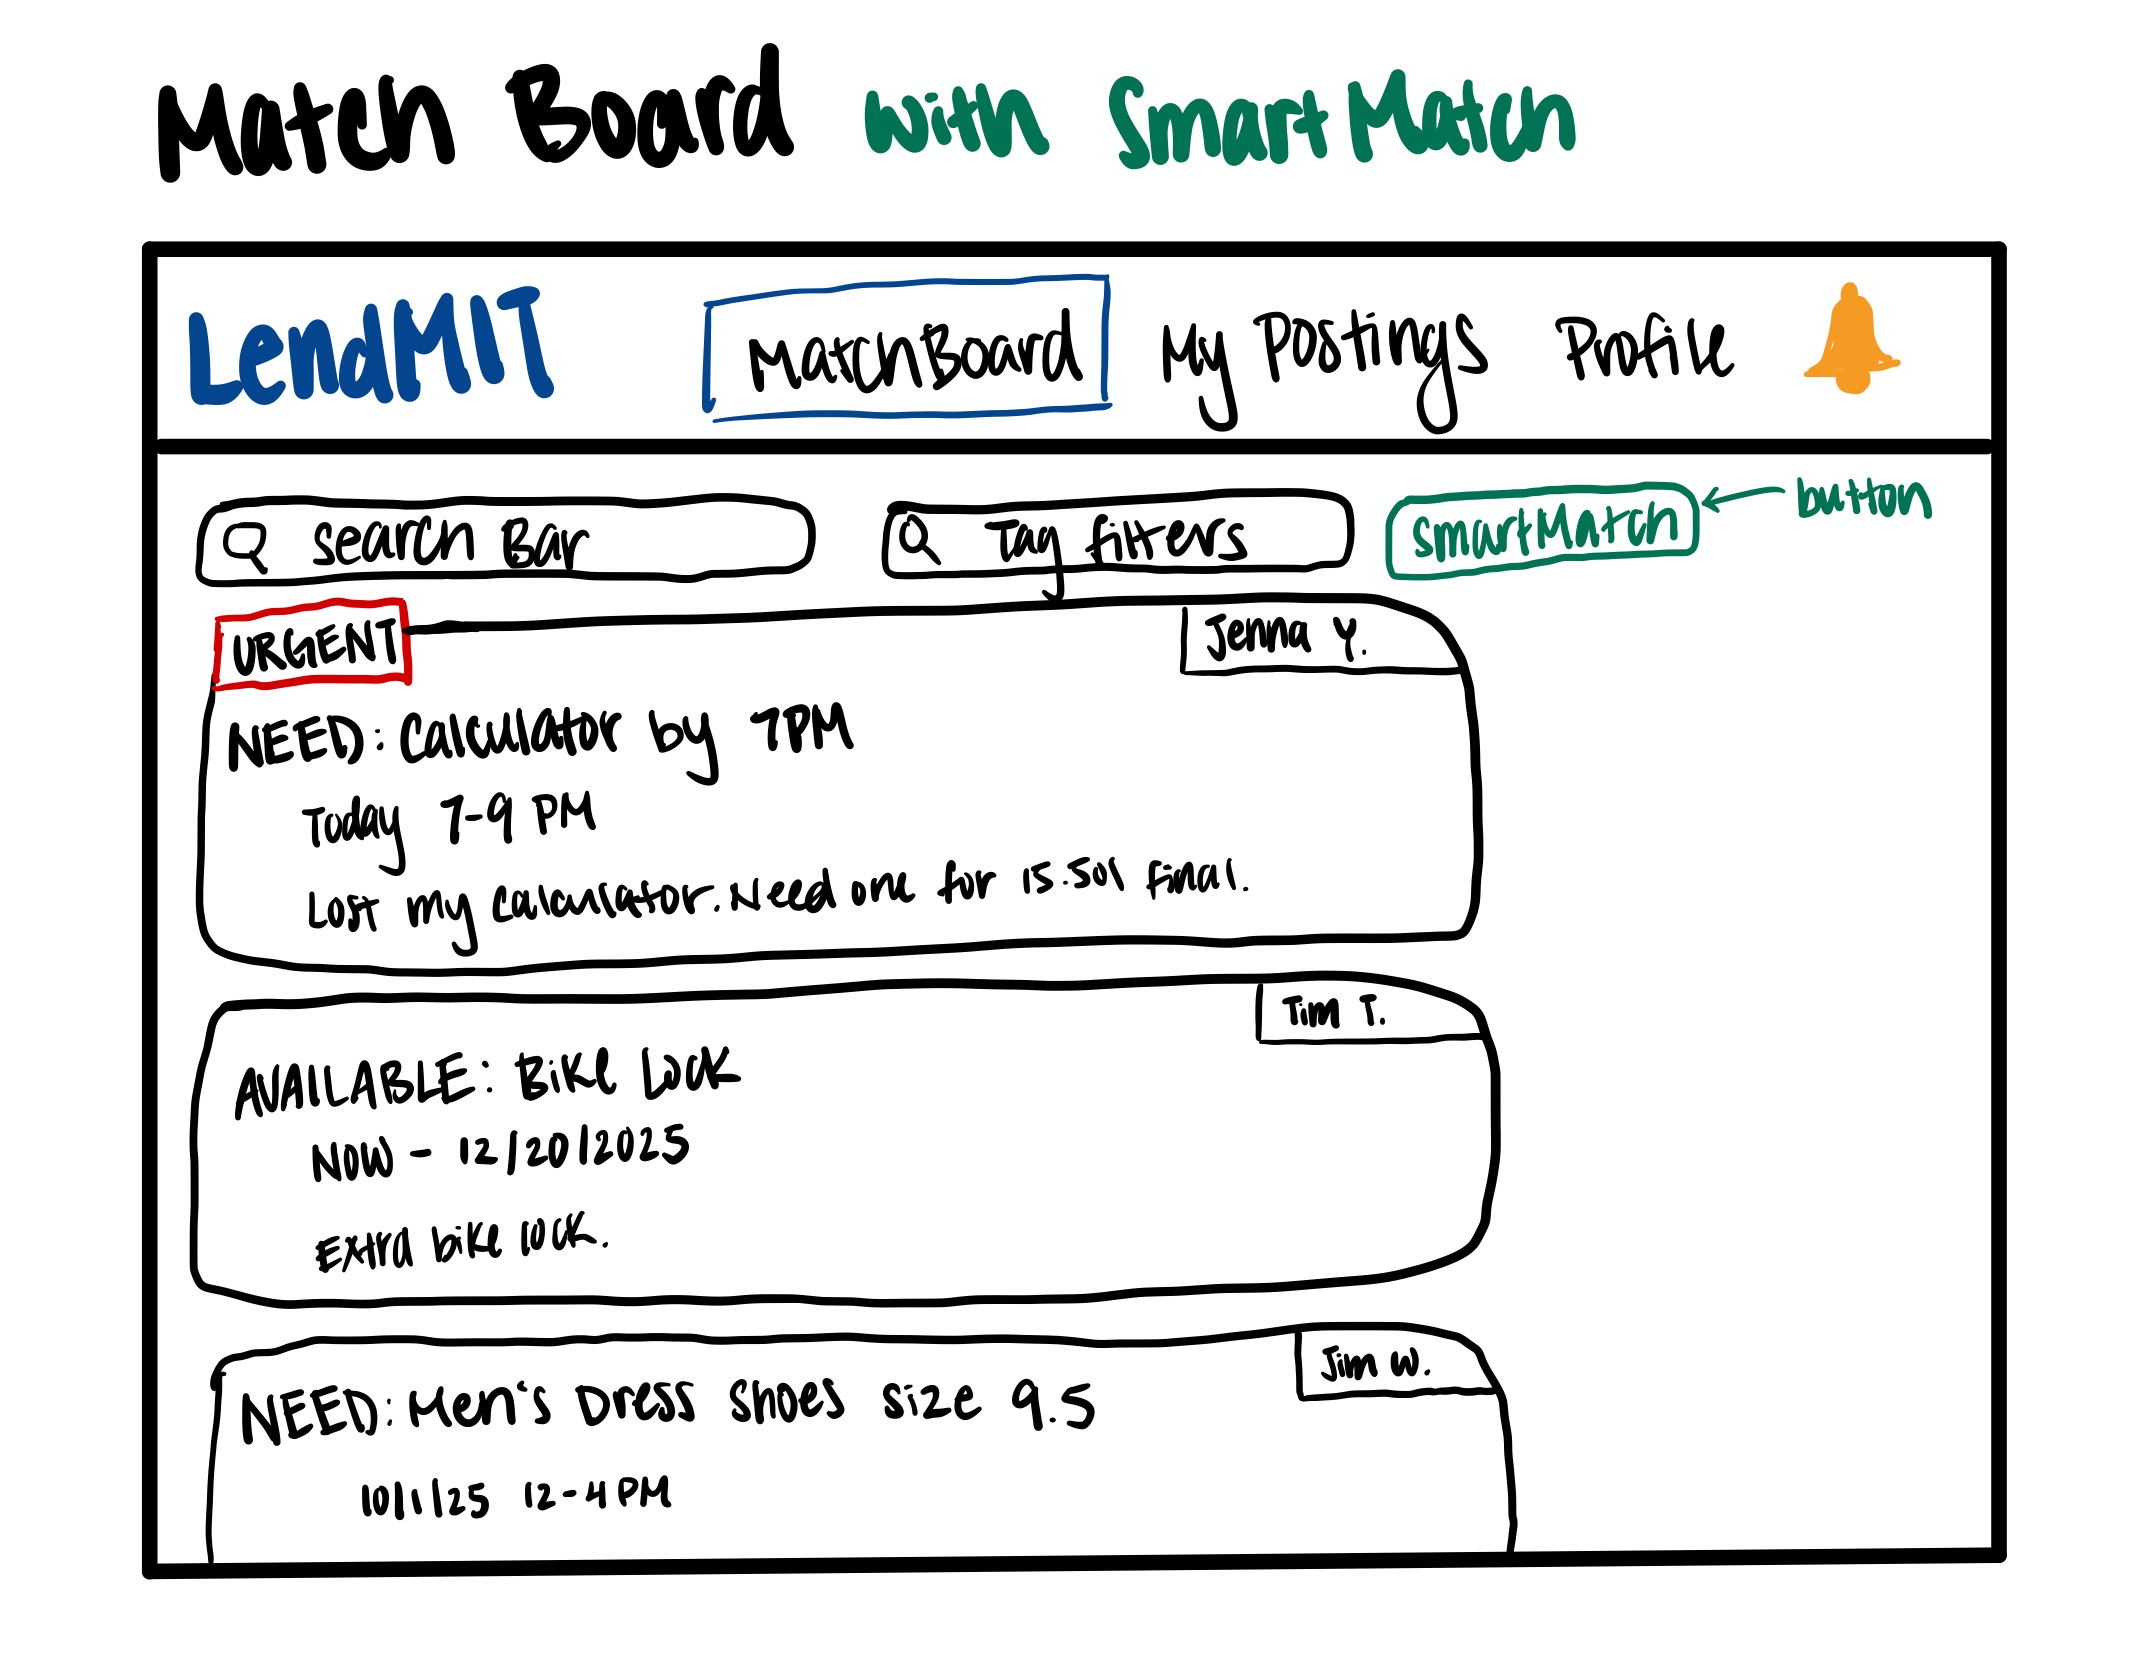 Match Board with SmartMatch
LendMIT MatchBoard My Postings Profile
Search Bar Tag filters SmartMatch button
URGENT Jenna Y.
NEED: Calculator by 7PM
Today 7-9 PM
Lost my calculator. Need one for 15.501 final.
Tim T.
AVAILABLE: Bike Lock
NOW - 12/20/2025
Extra bike lock.
Jim W.
NEED: Men's Dress shoes size 9.5
10/1/25 12-4PM